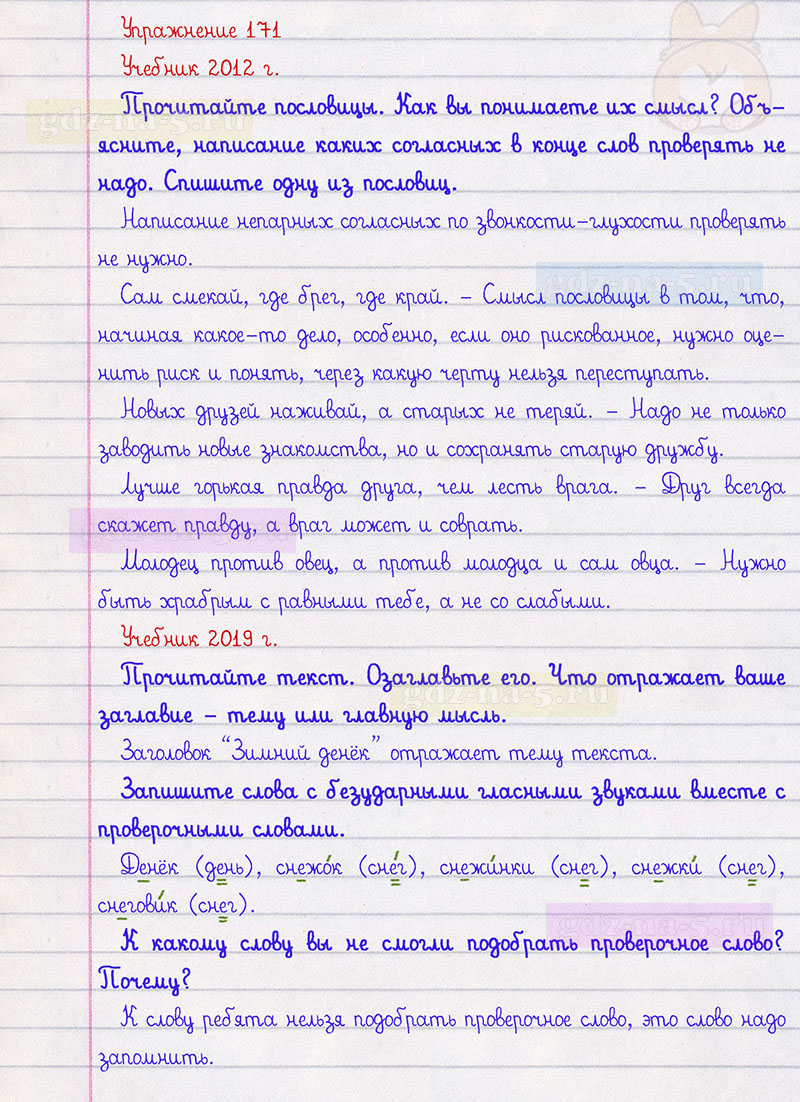 Упражнение 171
Учебник 2012 г.
Прочитайте пословицы. Как вы понимаете их смысл? Объ-
ясните, написание каких согласных в конце слов проверять не
надо. Спишите одну из пословиц.
Написание непарных согласных по звонкости-глухости проверять
не нужно.
Сам смекай, где брег, где край. – Смысл пословицы в том, что,
начиная какое-то дело, особенно, если оно рискованное, нужно оце-
нить риск и понять, через какую черту нельзя переступать.
Новых друзей наживай, а старых не теряй. – Надо не только
заводить новые знакомства, но и сохранять старую дружбу.
Лучше горькая правда друга, чем лесть врага. – Друг всегда
скажет правду, а враг может и соврать.
Молодец против овец, а против молодца и сам овца. – Нужно
быть храбрым с равными тебе, а не со слабыми.
Учебник 2019 г.
Прочитайте текст. Озаглавьте его. Что отражает ваше
заглавие – тему или главную мысль.
Заголовок "Зимний денёк" отражает тему текста.
Запишите слова с безударными гласными звуками вместе с
проверочными словами.
Денёк (день), снежо́к (сне́г), снежи́нки (снег), снежки́ (снег),
снегови́к (снег).
К какому слову вы не смогли подобрать проверочное слово?
Почему?
К слову ребята нельзя подобрать проверочное слово, это слово надо
запомнить.
gdz-na-5.ru
gdz-na-5.ru
gdz-na-5.ru
gdz-na-5.ru
gdz-na-5.ru